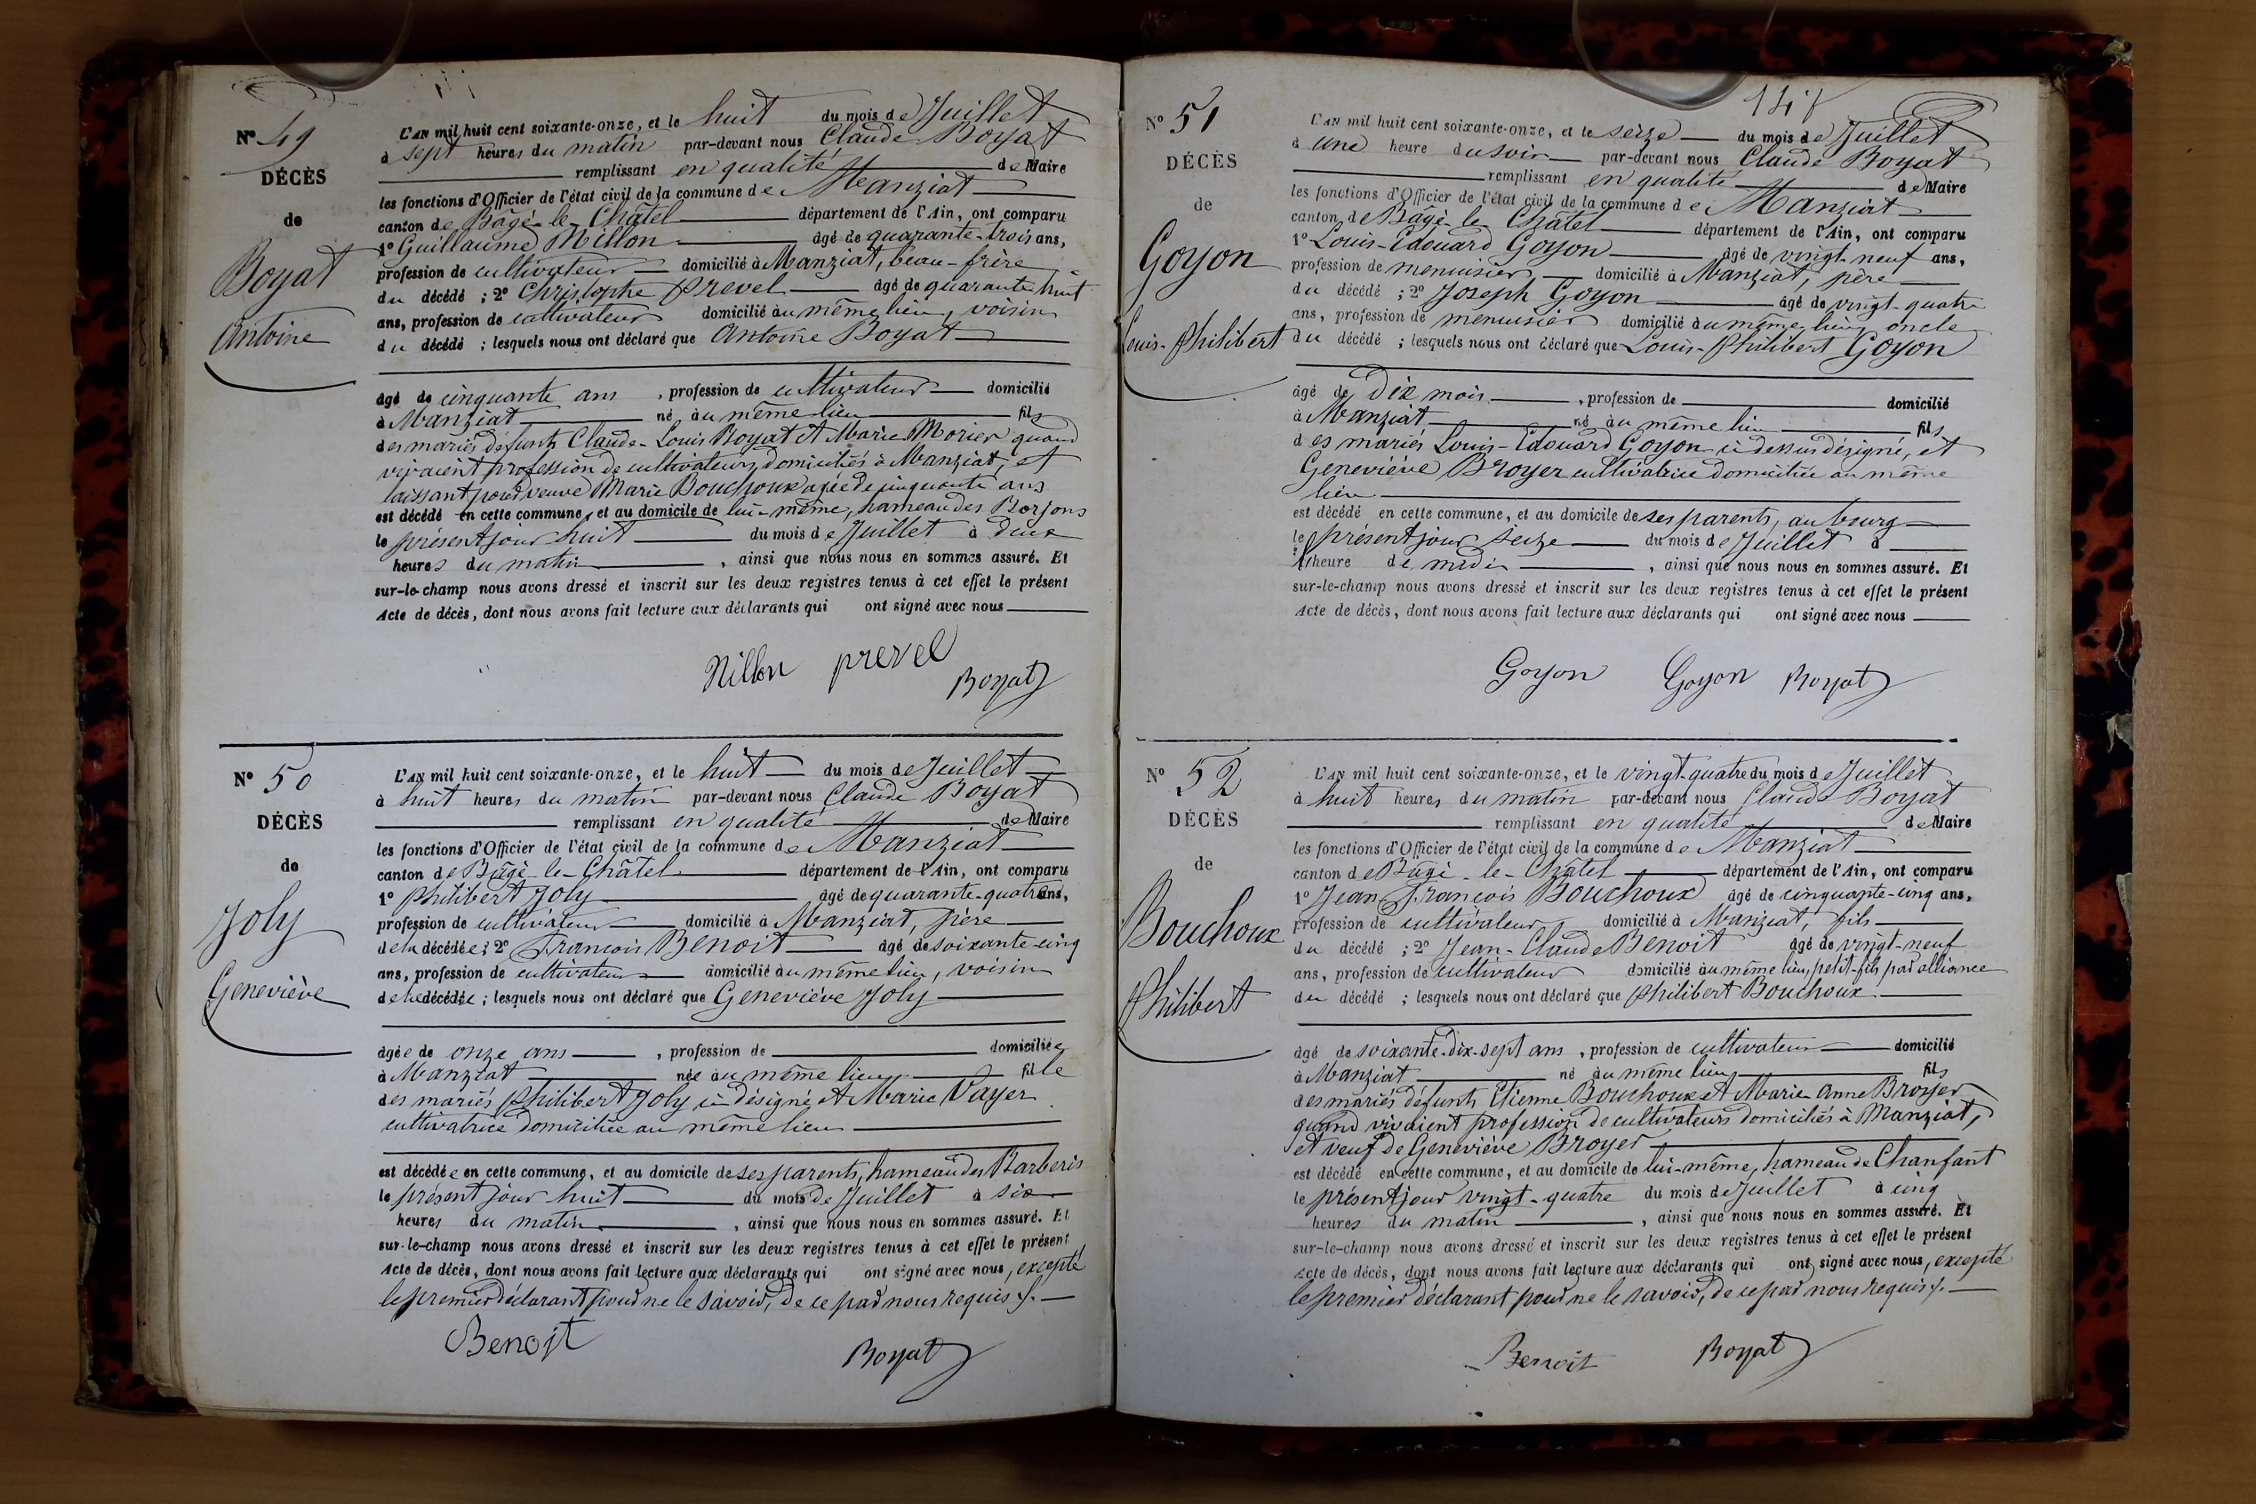 N° 49
DÉCÈS
de
Boyat
Antoine
L'AN mil huit cent soixante-onze, et le huit du mois de Juillet
à sept heures du matin par-devant nous Claude Boyat
remplissant en qualité de Maire
les fonctions d'Officier de l'état civil de la commune de Manziat
canton de Bâgé-le-Châtel département de l'Ain, ont comparu
1° Guillaume Millon âgé de quarante-trois ans,
profession de cultivateur domicilié à Manziat, beau-frère
du décédé ; 2° Christophe Prevel âgé de quarante huit
ans, profession de cultivateur domicilié au même lieu, voisin
du décédé ; lesquels nous ont déclaré que Antoine Boyat
âgé de cinquante ans , profession de cultivateur domicilié
à Manziat né au même lieu fils
des mariés défunts Claude-Louis Boyat et Marie Morier quand
vivaient profession de cultivateurs domiciliés à Manziat, et
laissant pour veuve Marie Bouchoux agée de cinquante ans
est décédé en cette commune, et au domicile de lui-même, hameau des Borjons
le présent jour huit du mois de Juillet à deux
heures du matin , ainsi que nous nous en sommes assuré. Et
sur-le-champ nous avons dressé et inscrit sur les deux registres tenus à cet effet le présent
Acte de décès, dont nous avons fait lecture aux déclarants qui ont signé avec nous
Millon prevel
Boyat
N° 50
DÉCÈS
de
Joly
Geneviève
L'AN mil huit cent soixante-onze, et le huit du mois de Juillet
à huit heures du matin par-devant nous Claude Boyat
remplissant en qualité de Maire
les fonctions d'Officier de l'état civil de la commune de Manziat
canton de Bâgé-le-Châtel département de l'Ain, ont comparu
1° Philibert Joly âgé de quarante-quatre ans,
profession de cultivateur domicilié à Manziat, père
de la décédée ; 2° François Benoit âgé de soixante-cinq
ans, profession de cultivateur domicilié au même lieu, voisin
de la décédée ; lesquels nous ont déclaré que Geneviève Joly
âgée de onze ans , profession de domiciliée
à Manziat née au même lieu fille
des mariés Philibert Joly ci désigné et Marie Vayer
cultivatrice domiciliée au même lieu
est décédée en cette commune, et au domicile de ses parents, hameau des Barberis
le présent jour huit du mois de Juillet à six
heures du matin , ainsi que nous nous en sommes assuré. Et
sur-le-champ nous avons dressé et inscrit sur les deux registres tenus à cet effet le présent
Acte de décès, dont nous avons fait lecture aux déclarants qui ont signé avec nous, excepté
le premier déclarant pour ne le savoir, de ce par nous requis ./.
Benoit
Boyat
N° 51
DÉCÈS
de
Goyon
Louis-Philibert
L'AN mil huit cent soixante-onze, et le seize du mois de Juillet
à une heure du soir par-devant nous Claude Boyat
remplissant en qualité de Maire
les fonctions d'Officier de l'état civil de la commune de Manziat
canton de Bâgé-le-Châtel département de l'Ain, ont comparu
1° Louis-Edouard Goyon âgé de vingt-neuf ans,
profession de menuisier domicilié à Manziat, père
du décédé ; 2° Joseph Goyon âgé de vingt-quatre
ans, profession de menuisier domicilié au même lieu, oncle
du décédé ; lesquels nous ont déclaré que Louis-Philibert Goyon
âgé de Dix mois , profession de domicilié
à Manziat né au même lieu fils
des mariés Louis-Edouard Goyon ci dessus désigné, et
Geneviève Broyer cultivatrice domiciliée au même
lieu
est décédé en cette commune, et au domicile de ses parents, au bourg
le présent jour seize du mois de Juillet à
heure de midi , ainsi que nous nous en sommes assuré. Et
sur-le-champ nous avons dressé et inscrit sur les deux registres tenus à cet effet le présent
Acte de décès, dont nous avons fait lecture aux déclarants qui ont signé avec nous
Goyon Goyon Boyat
N° 52
DÉCÈS
de
Bouchoux
Philibert
L'AN mil huit cent soixante-onze, et le vingt-quatre du mois de Juillet
à huit heures du matin par-devant nous Claude Boyat
remplissant en qualité de Maire
les fonctions d'Officier de l'état civil de la commune de Manziat
canton de Bâgé-le-Châtel département de l'Ain, ont comparu
1° Jean François Bouchoux âgé de cinquante-cinq ans,
profession de cultivateur domicilié à Manziat, fils
du décédé ; 2° Jean-Claude Benoit âgé de vingt-neuf
ans, profession de cultivateur domicilié au même lieu, petit-fils par alliance
du décédé ; lesquels nous ont déclaré que Philibert Bouchoux
âgé de soixante-dix-sept ans , profession de cultivateur domicilié
à Manziat né au même lieu fils
des mariés défunts Etienne Bouchoux et Marie Anne Broyer
quand vivaient profession de cultivateurs domiciliés à Manziat,
et veuf de Geneviève Broyer
est décédé en cette commune, et au domicile de lui-même, hameau de Chanfant
le présent jour vingt-quatre du mois de Juillet à cinq
heures du matin , ainsi que nous nous en sommes assuré. Et
sur-le-champ nous avons dressé et inscrit sur les deux registres tenus à cet effet le présent
Acte de décès, dont nous avons fait lecture aux déclarants qui ont signé avec nous, excepté
le premier déclarant pour ne le savoir, de ce par nous requis ./.
Benoit Boyat